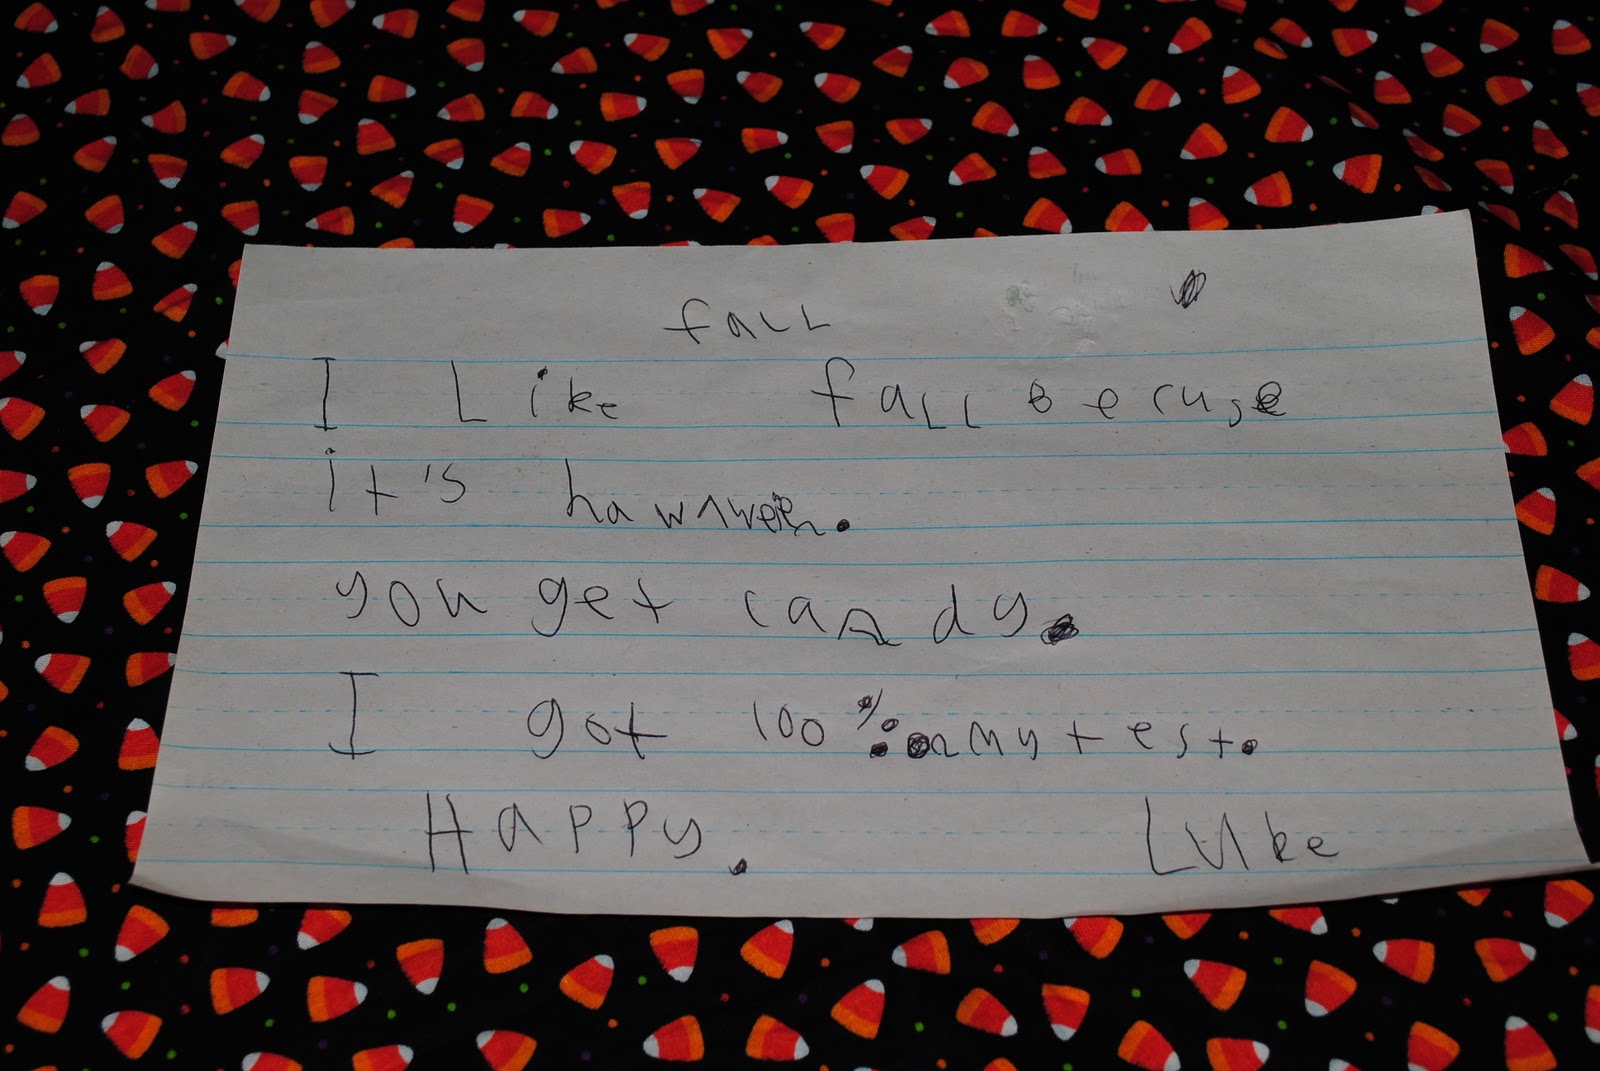 fall
I Like fall Becuse
it's hawnween.
you get candy.
I got 100%. on my test.
Happy. Luke